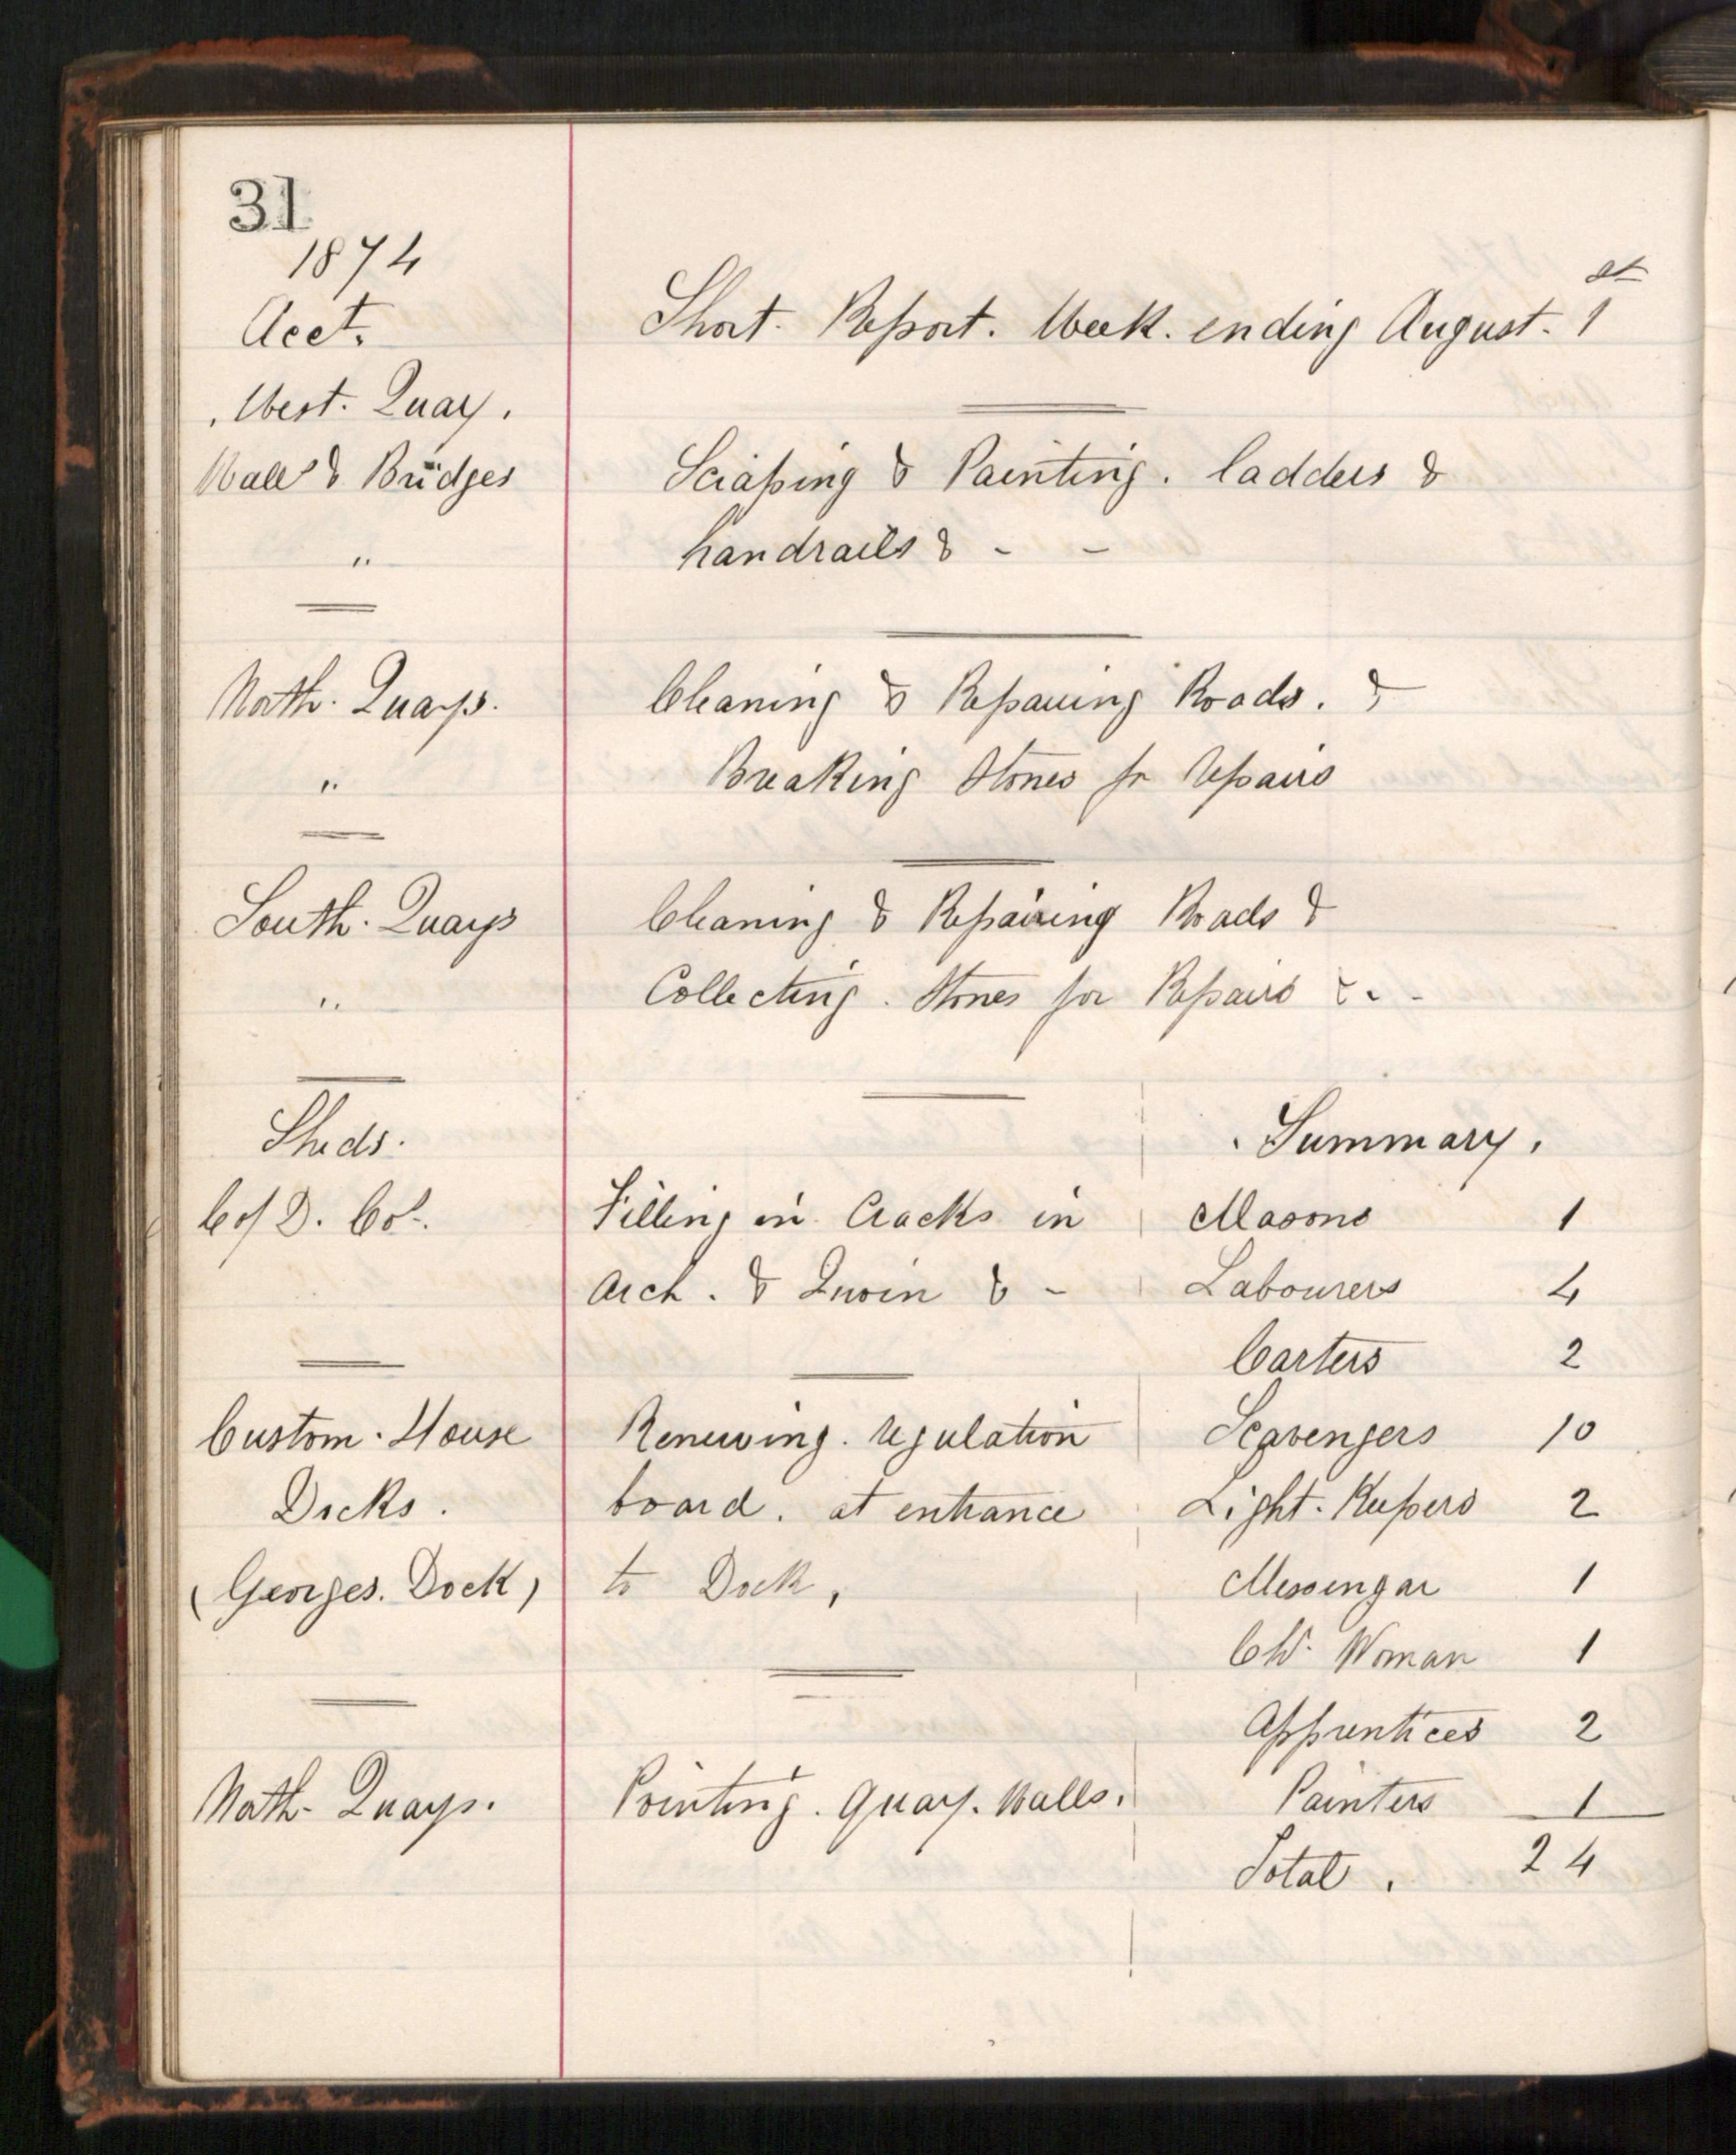 31
1874
Acct.
Short. Report. Week. ending August. 1st
West. Quay.
Walls & Bridges
Scraping & Painting. ladders &
"
handrails & - -
North. Quays.
Cleaning & Repairing Roads. &
"
Breaking Stones for Repairs
South. Quays
Cleaning & Repairing Roads &
"
Collecting. Stones for Repairs &. -
Sheds.
Summary.
C of D. Co.
Filling in Cracks in
Masons 1
Arch. & Quoin & -
Labourers 4
Carters 2
Custom. House
Renewing. regulation
Scavengers 10
Docks.
board. at entrance
Light. Keepers 2
(Georges. Dock)
to Dock,
Messengar 1
Woman 1
Apprentices 2
North. Quays.
Pointing. Quay. Walls.
Painters 1
Total. 24